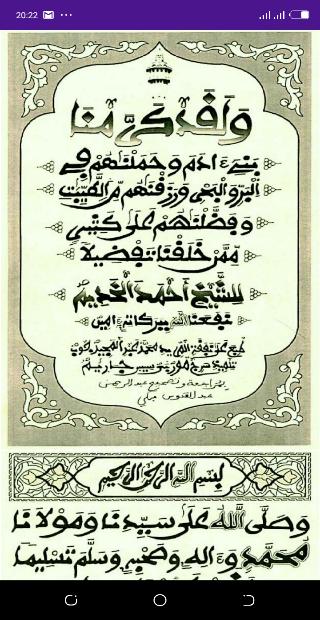 20:22
وَلَقَدْ كَرَّمْنَا
بَنِيٓ ءَادَمَ وَحَمَلْنَاهُمْ فِي
الْبَرِّ وَالْبَحْرِ وَرَزَقْنَاهُمْ مِّنَ الطَّيِّبَاتِ
وَفَضَّلْنَاهُمْ عَلَى كَثِيرٍ
مِّمَّنْ خَلَقْنَا تَفْضِيلًا
لِلشَّيْخِ أَحْمَدَ الْخَدِيمِ
نَفَعَنَا اللهُ بِبَرَكَاتِهِ ءَامِين
بِسْمِ اللَّهِ الرَّحْمَٰنِ الرَّحِيمِ
وَصَلَّى اللَّهُ عَلَى سَيِّدِنَا وَمَوْلَانَا
مُحَمَّدٍ وَءَالِهِ وَصَحْبِهِ وَسَلَّمَ تَسْلِيمًا